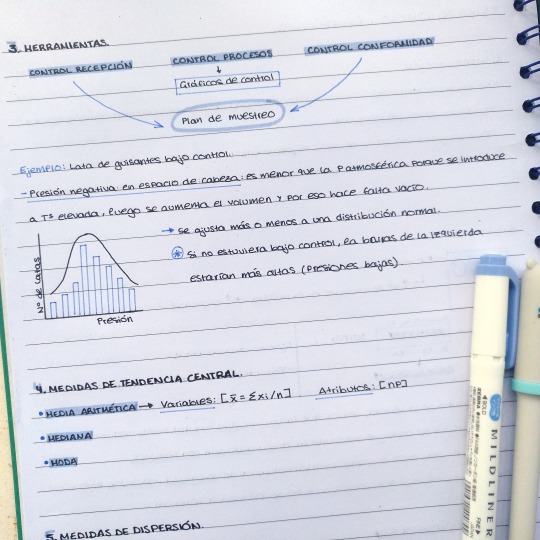 3. HERRAMIENTAS.
CONTROL RECEPCIÓN CONTROL PROCESOS CONTROL CONFORMIDAD
Gráficos de control
Plan de muestreo
Ejemplo: Lata de guisantes bajo control.
- Presión negativa en espacio de cabeza: es menor que la Patmosférica porque se introduce
a Tª elevada, luego se aumenta el volumen y por eso hace falta vacío.
→ se ajusta más o menos a una distribución normal.
* Si no estuviera bajo control, la barras de la izquierda
estarían más altas (presiones bajas)
Nº de latas
Presión
4. MEDIDAS DE TENDENCIA CENTRAL.
• MEDIA ARITMÉTICA → Variables: [x̄ = Σxi/n] Atributos: [np]
• MEDIANA
• MODA
5. MEDIDAS DE DISPERSIÓN.
BOLD
ZEBRA
MILDLINER
FINE